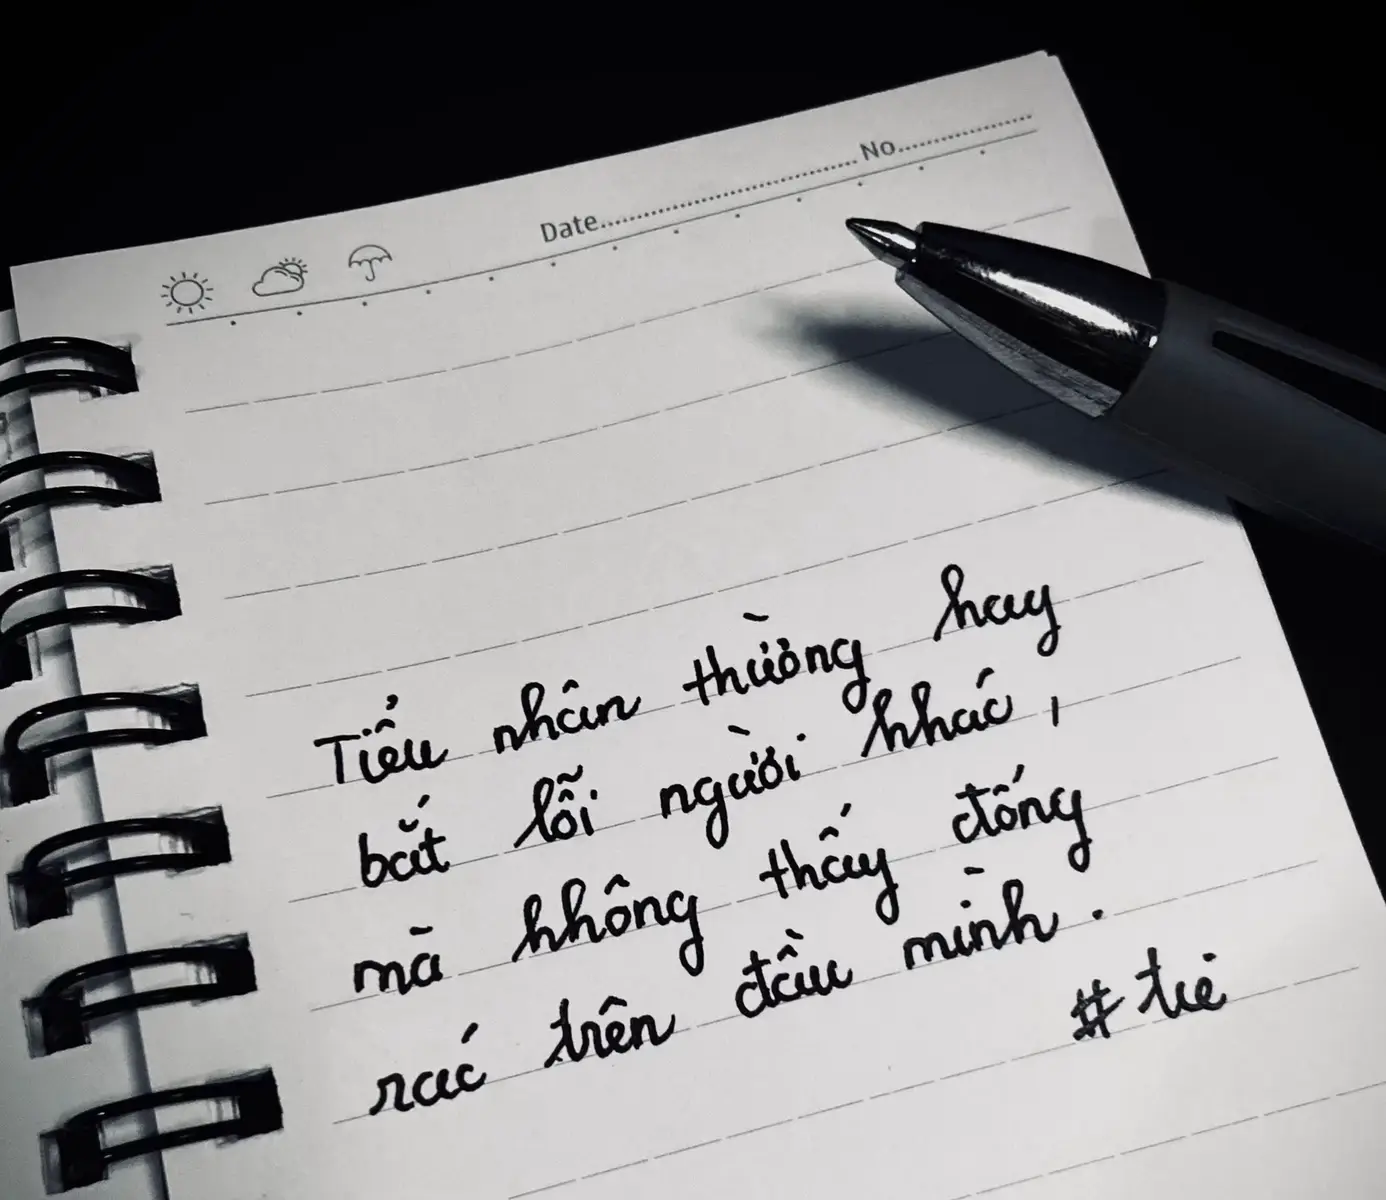 Date.............................. No................
Tiểu nhân thường hay
bắt lỗi người khác,
mà không thấy đống
rác trên đầu mình.